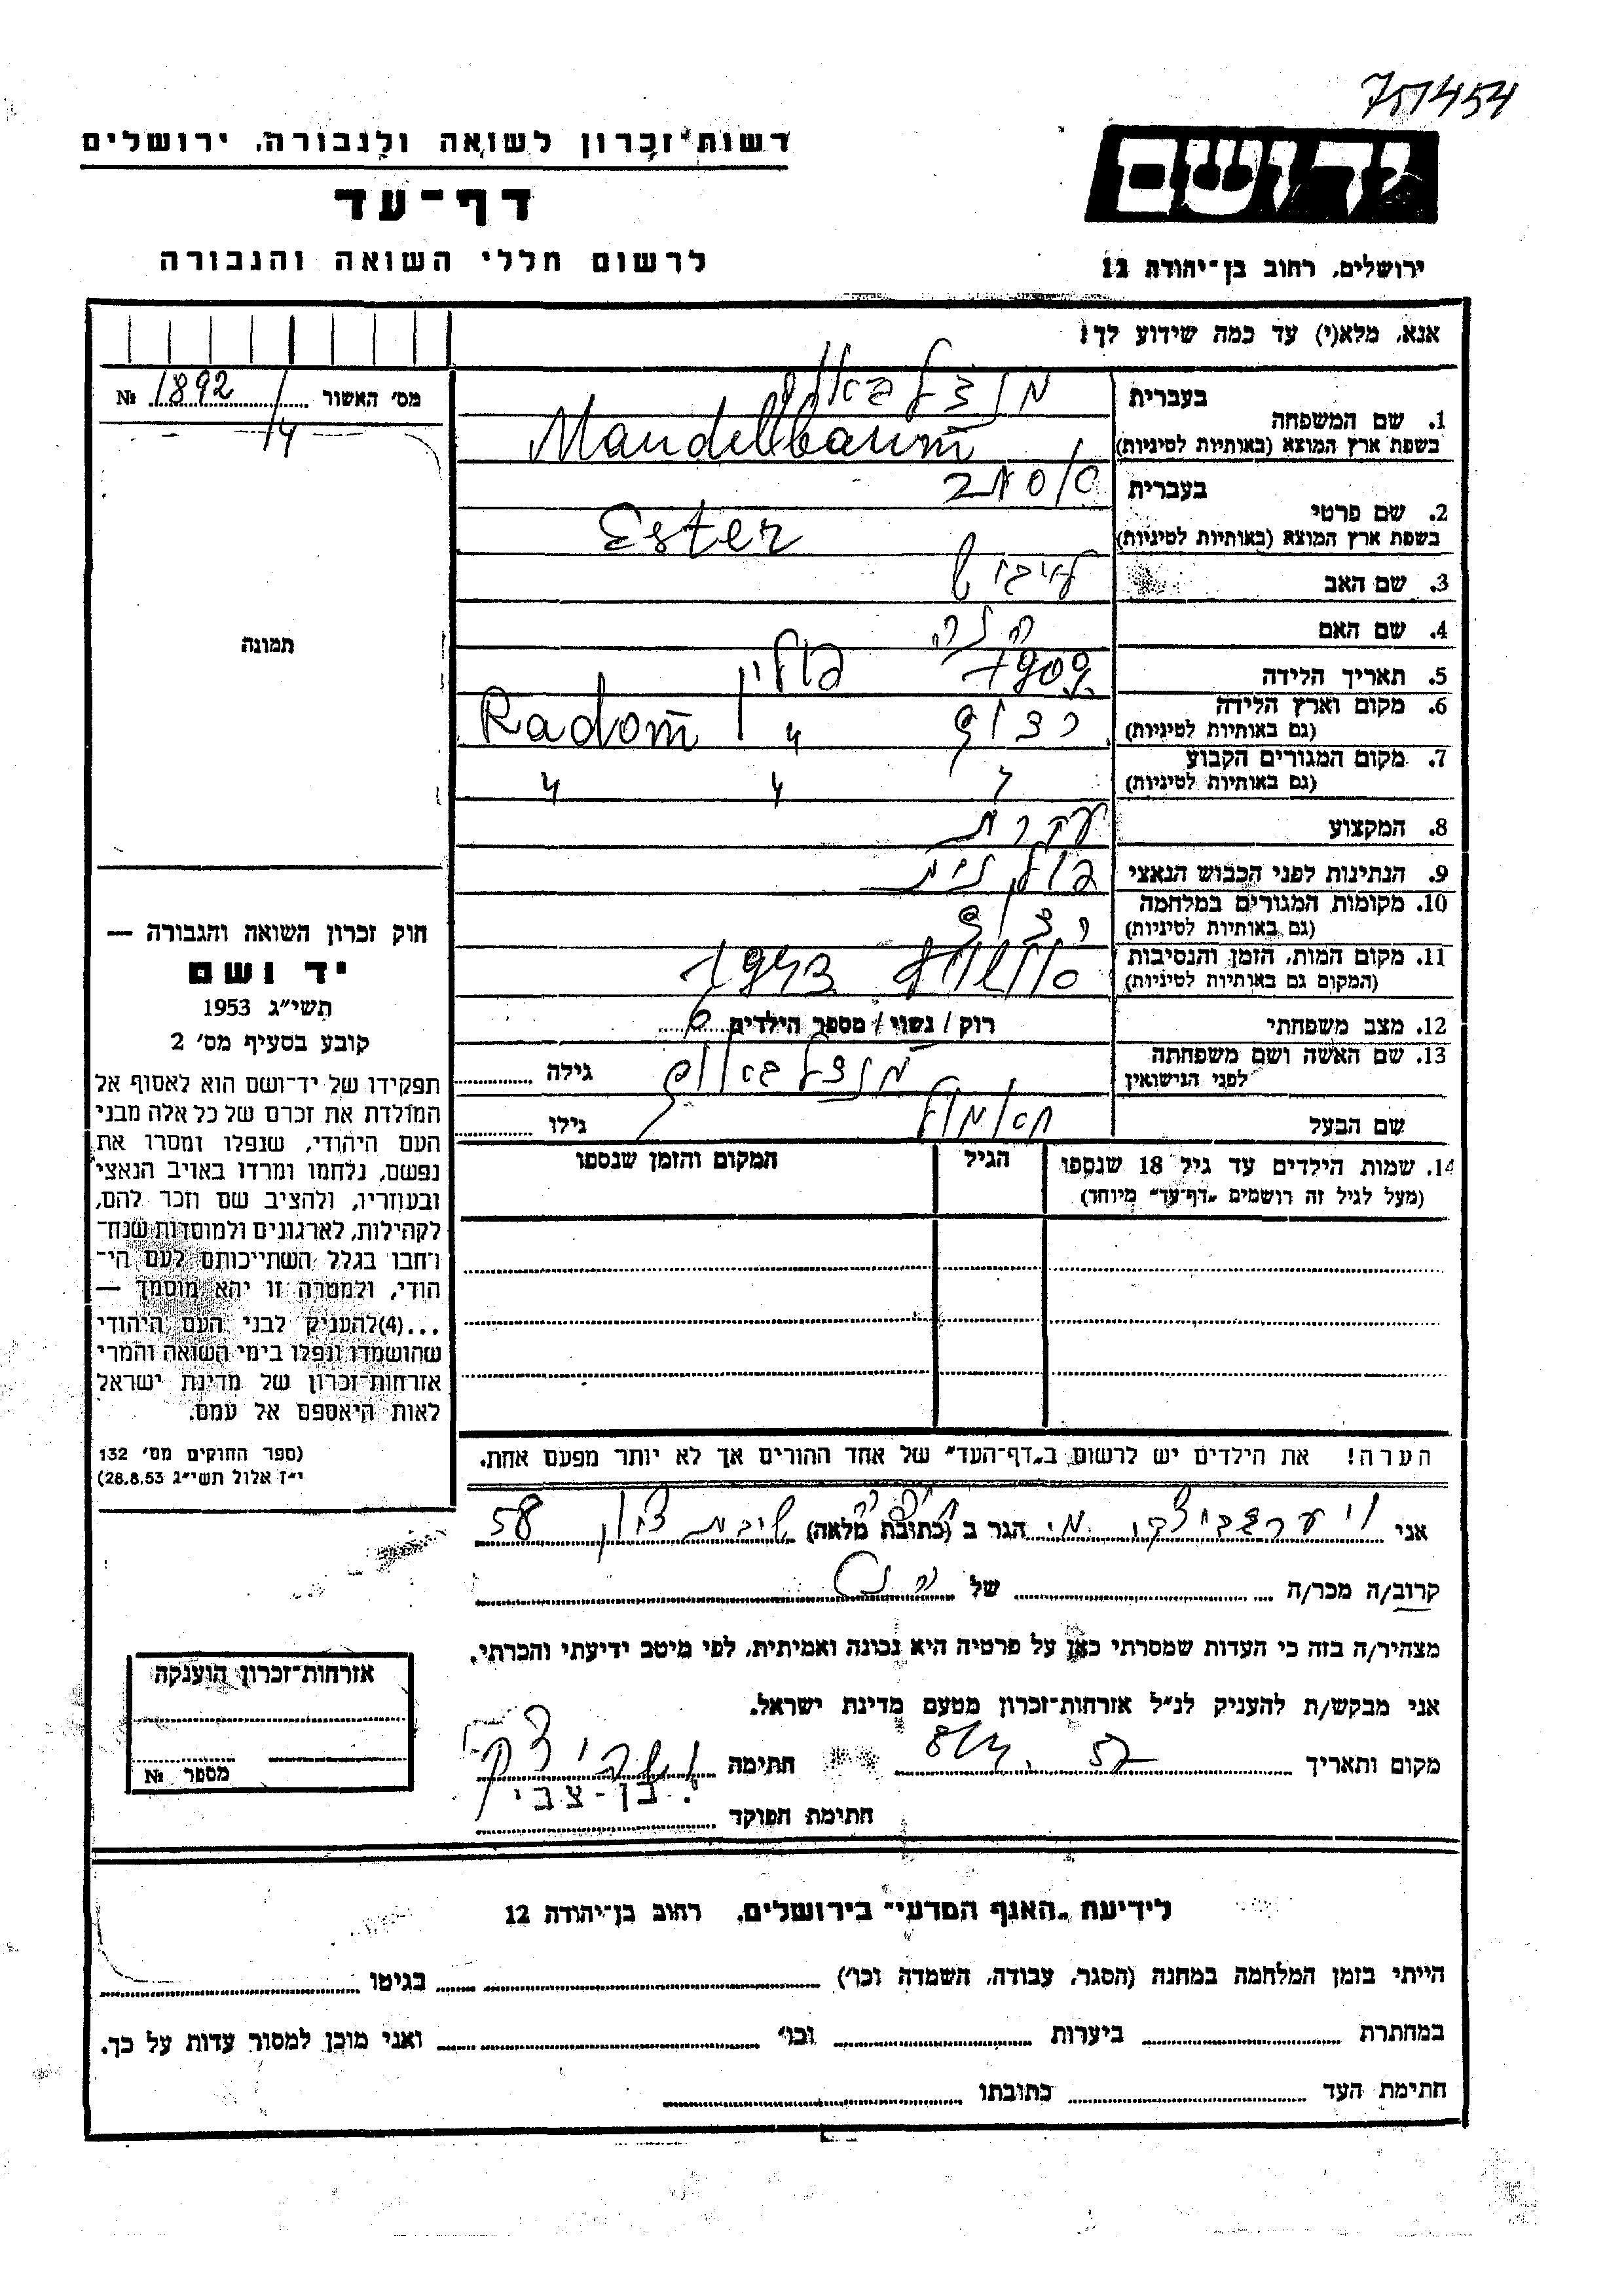 751454
רשות זכרון לשואה ולגבורה, ירושלים
דף-עד
לרשום חללי השואה והגבורה
יד ושם
ירושלים, רחוב בן-יהודה 12
אנא, מלא(י) עד כמה שידוע לך!
מס' האשור № 1892/4
תמונה
1. שם המשפחה
בעברית מנדלבאום
בשפת ארץ המוצא (באותיות לטיניות) Mandelbaum
2. שם פרטי
בעברית
בשפת ארץ המוצא (באותיות לטיניות) Ester
3. שם האב לייבוש
4. שם האם
5. תאריך הלידה 1909
6. מקום וארץ הלידה (גם באותיות לטיניות) רדום פולין Radom
7. מקום המגורים הקבוע (גם באותיות לטיניות) " " "
8. המקצוע עקרת
9. הנתינות לפני הכבוש הנאצי פולנית
10. מקומות המגורים במלחמה (גם באותיות לטיניות) רדום
11. מקום המות, הזמן והנסיבות (המקום גם באותיות לטיניות) 1943
12. מצב משפחתי רוק / נשוי / מספר הילדים
13. שם האשה ושם משפחתה לפני הנישואין מנדלבאום גילה
שם הבעל גילו
14. שמות הילדים עד גיל 18 שנספו (מעל לגיל זה רושמים "דף-עד" מיוחד)
הגיל
המקום והזמן שנספו
הערה! את הילדים יש לרשום ב"דף-העד" של אחד ההורים אך לא יותר מפעם אחת.
חוק זכרון השואה והגבורה —
יד ושם
תשי"ג 1953
קובע בסעיף מס' 2
תפקידו של יד-ושם הוא לאסוף אל
המולדת את זכרם של כל אלה מבני
העם היהודי, שנפלו ומסרו את
נפשם, נלחמו ומרדו באויב הנאצי
ובעוזריו, ולהציב שם וזכר להם,
לקהילות, לארגונים ולמוסדות שנח-
רחבו בגלל השתייכותם לעם הי-
הודי, ולמטרה זו יהא מוסמך —
...(4)להעניק לבני העם היהודי
שהושמדו ונפלו בימי השואה והמרי
אזרחות-זכרון של מדינת ישראל
לאות היאספם אל עמם.
(ספר החוקים מס' 132
י"ז אלול תשי"ג 28.8.53)
אני הגר ב (כתובת מלאה) שיבת ציון 58
קרוב/ה מכר/ה של
מצהיר/ה בזה כי העדות שמסרתי כאן על פרטיה היא נכונה ואמיתית, לפי מיטב ידיעתי והכרתי.
אני מבקש/ת להעניק לנ"ל אזרחות-זכרון מטעם מדינת ישראל.
מקום ותאריך חתימה
חתימת הפוקד י. בן-צבי
אזרחות-זכרון הוענקה
מספר №
לידיעת "האגף המדעי" בירושלים, רחוב בן-יהודה 12
הייתי בזמן המלחמה במחנה (הסגר, עבודה, השמדה וכו') בגיטו
במחתרת ביערות וכו' ואני מוכן למסור עדות על כך.
חתימת העד כתובתו